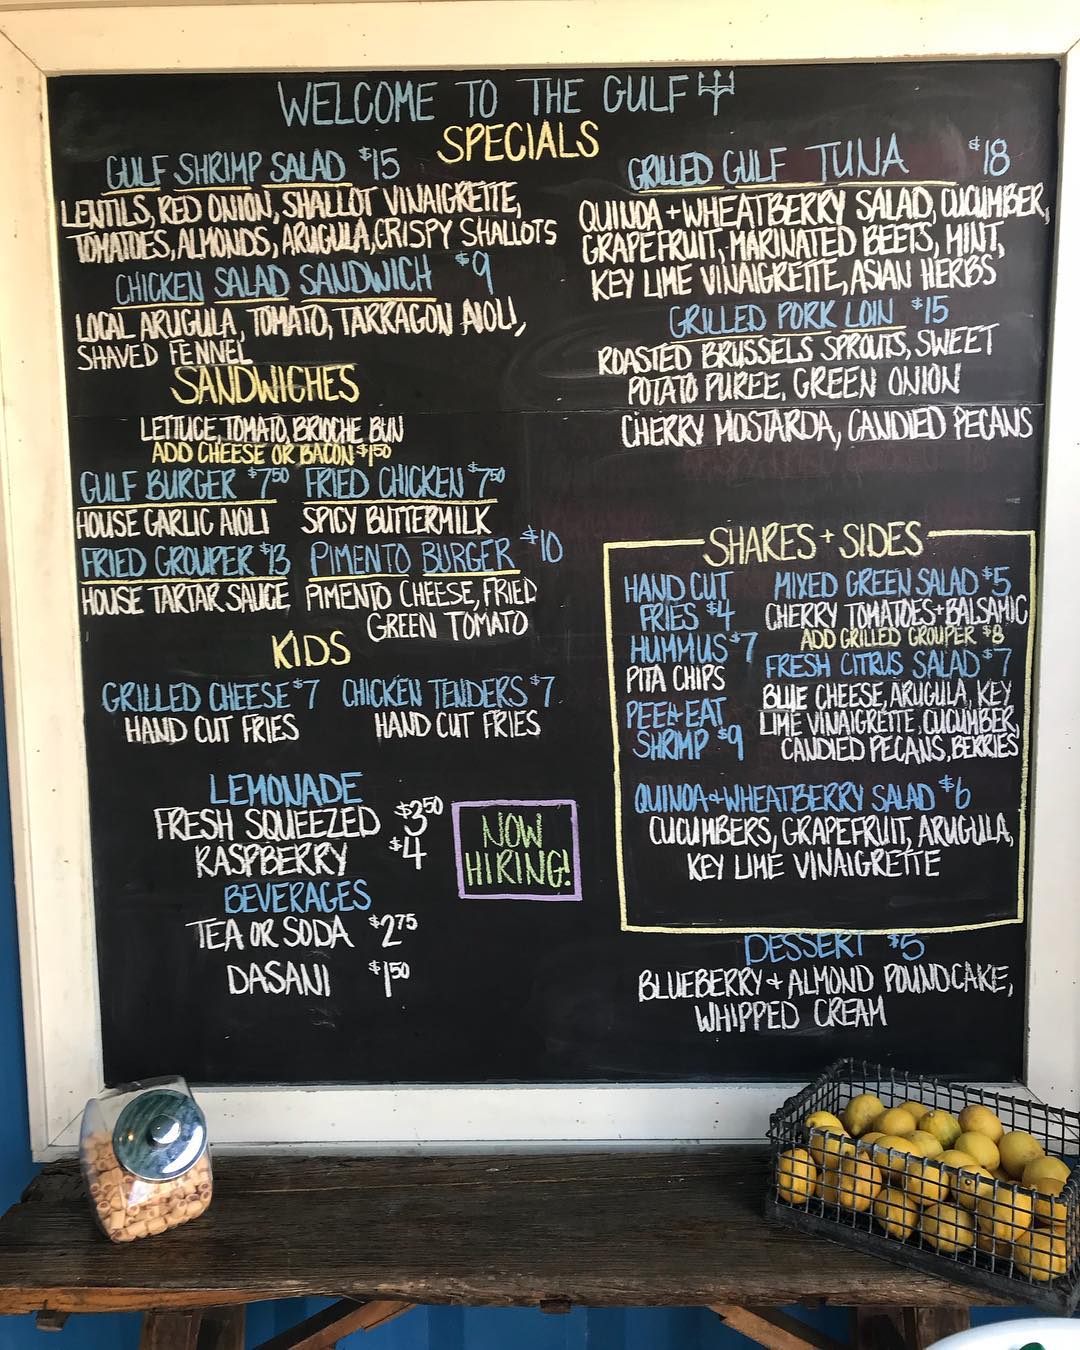 WELCOME TO THE GULF
SPECIALS
GULF SHRIMP SALAD $15
LENTILS, RED ONION, SHALLOT VINAIGRETTE,
TOMATOES, ALMONDS, ARUGULA, CRISPY SHALLOTS
CHICKEN SALAD SANDWICH $9
LOCAL ARUGULA, TOMATO, TARRAGON AIOLI,
SHAVED FENNEL
GRILLED GULF TUNA $18
QUINOA + WHEATBERRY SALAD, CUCUMBER,
GRAPEFRUIT, MARINATED BEETS, MINT,
KEY LIME VINAIGRETTE, ASIAN HERBS
GRILLED PORK LOIN $15
ROASTED BRUSSELS SPROUTS, SWEET
POTATO PUREE, GREEN ONION
CHERRY MOSTARDA, CANDIED PECANS
SANDWICHES
LETTUCE, TOMATO, BRIOCHE BUN
ADD CHEESE OR BACON $1.50
GULF BURGER $7.50 FRIED CHICKEN $7.50
HOUSE GARLIC AIOLI SPICY BUTTERMILK
FRIED GROUPER $13 PIMENTO BURGER $10
HOUSE TARTAR SAUCE PIMENTO CHEESE, FRIED
GREEN TOMATO
KIDS
GRILLED CHEESE $7 CHICKEN TENDERS $7
HAND CUT FRIES HAND CUT FRIES
LEMONADE
FRESH SQUEEZED $3.50
RASPBERRY $4
BEVERAGES
TEA OR SODA $2.75
DASANI $1.50
NOW
HIRING!
SHARES + SIDES
HAND CUT
FRIES $4
HUMMUS $7
PITA CHIPS
PEEL + EAT
SHRIMP $9
MIXED GREEN SALAD $5
CHERRY TOMATOES + BALSAMIC
ADD GRILLED GROUPER $8
FRESH CITRUS SALAD $7
BLUE CHEESE, ARUGULA, KEY
LIME VINAIGRETTE, CUCUMBER,
CANDIED PECANS, BERRIES
QUINOA + WHEATBERRY SALAD $6
CUCUMBERS, GRAPEFRUIT, ARUGULA,
KEY LIME VINAIGRETTE
DESSERT $5
BLUEBERRY + ALMOND POUNDCAKE,
WHIPPED CREAM